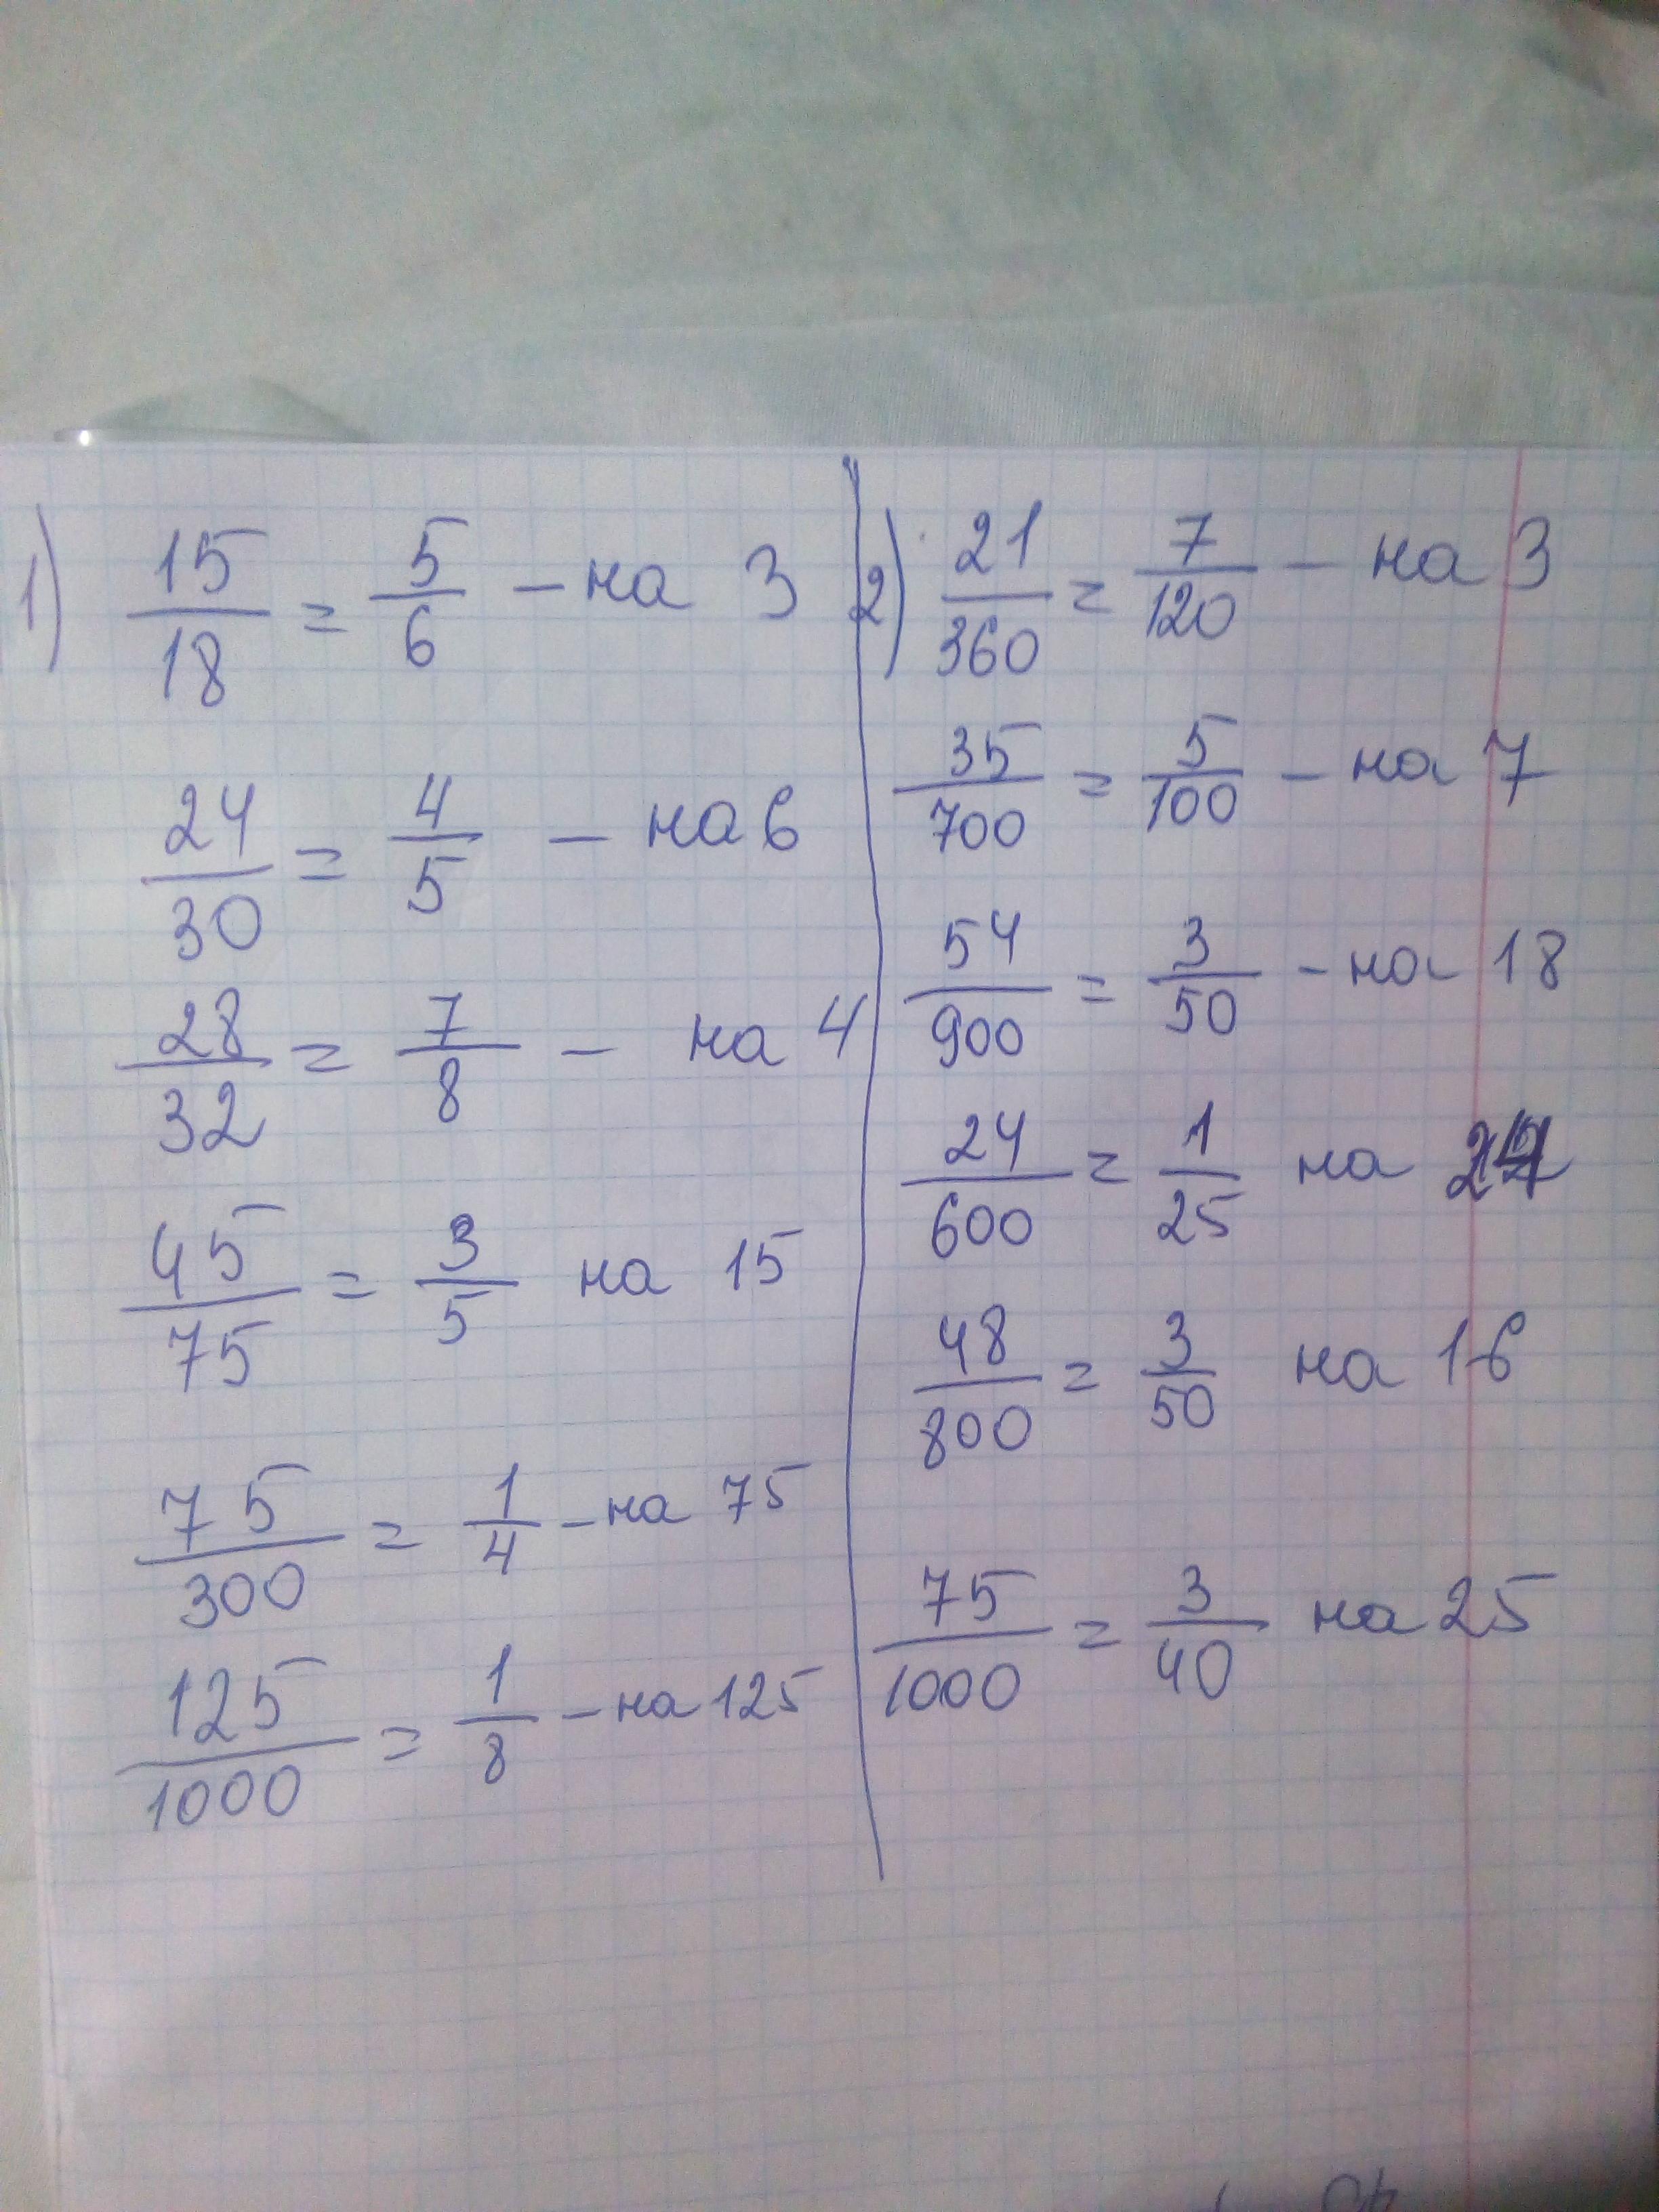 1) 15/18 = 5/6 – на 3
24/30 = 4/5 – на 6
28/32 = 7/8 – на 4
45/75 = 3/5 на 15
75/300 = 1/4 – на 75
125/1000 = 1/8 – на 125
2) 21/360 = 7/120 – на 3
35/700 = 5/100 – на 7
54/900 = 3/50 – на 18
24/600 = 1/25 на 24
48/800 = 3/50 на 16
75/1000 = 3/40 на 25